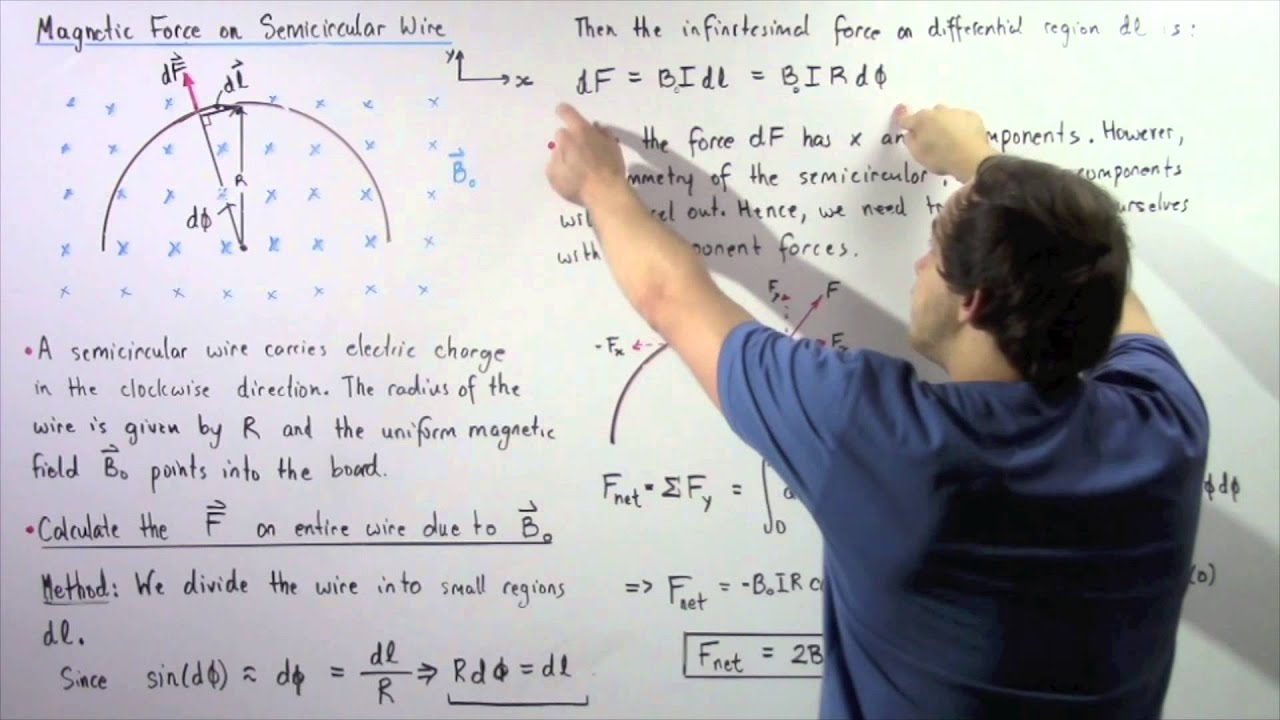 Magnetic Force on Semicircular Wire
dF⃗
dl⃗
y
x
R
dϕ
B⃗₀
• A semicircular wire carries electric charge
in the clockwise direction. The radius of the
wire is given by R and the uniform magnetic
field B⃗₀ points into the board.
• Calculate the F⃗ on entire wire due to B⃗₀
Method: We divide the wire into small regions
dl.
Since sin(dϕ) ≈ dϕ = dl/R ⇒ Rdϕ = dl
Then the infinitesimal force on differential region dl is:
dF = B₀Idl = B₀IRdϕ
the force dF has x components. However,
of the semicircular, components
out. Hence, we need
forces.
Fy
F
-Fx
Fx
Fnet = ΣFy = ∫₀ ϕdϕ
=> Fnet = -B₀IR (0)
Fnet = 2B